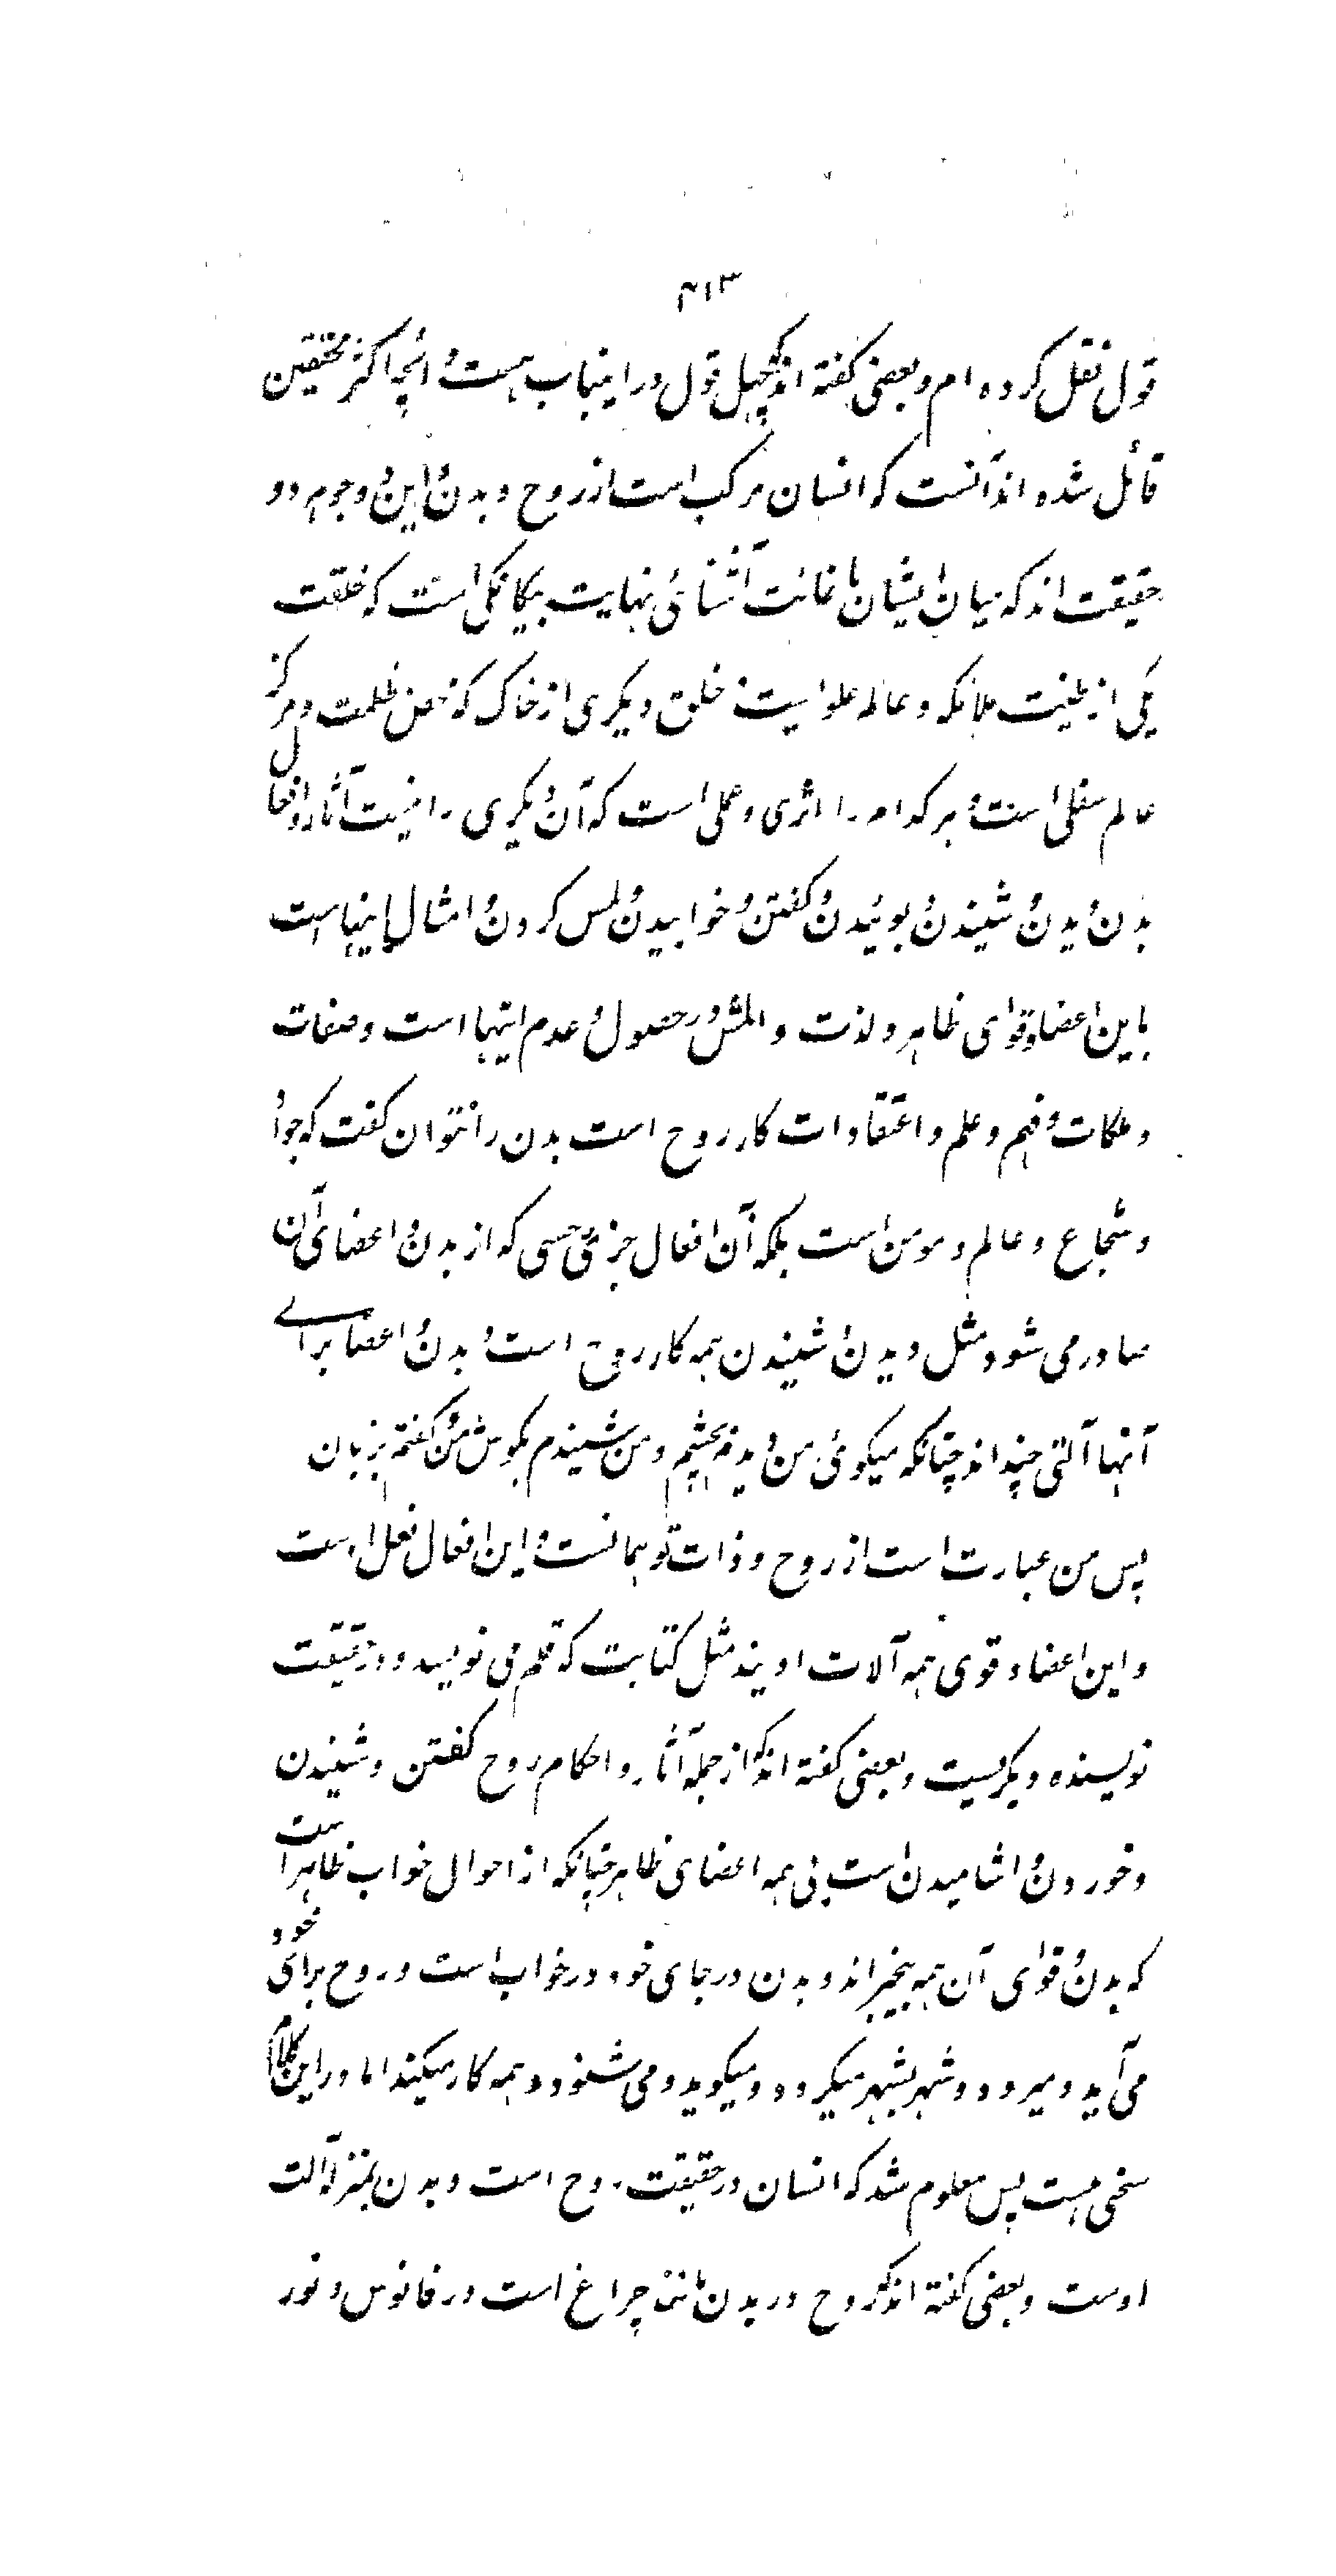 ۴۱۳
قول نقل کرده ام و بعضی گفته اند که چهل قول در اینباب هست و انچه اکثر محققین
قائل شده اند آنست که انسان مرکب است از روح و بدن و این دو جوهر دو
حقیقت اند که میان ایشان با غایت آشنائی نهایت بیگانگی است که خلقت
یکی از طینت ملائکه و عالم علوایست و خلق دیگری از خاک که محض ظلمت و مرکز
عالم سفلی است و هر کدام را اثری و عملی است که آن دیگری را نیست آثار و افعال
بدن دیدن و شنیدن و بوئیدن و گفتن و خوابیدن و لمس کردن و امثال اینها است
باین اعضا و قوای ظاهر و لذت و المش در حصول و عدم اینها است و صفات
و ملکات و فهم و علم و اعتقادات کار روح است بدن را نتوان گفت که جواد
و شجاع و عالم و مومن است بلکه آن افعال جزئی حسی که از بدن و اعضای آن
صادر می شود مثل دیدن و شنیدن همه کار روح است و بدن و اعضا برای
آنها آلتی چند اند چنانکه میگوئی من دیدم بچشم و من شنیدم بگوش و من گفتم بزبان
پس من عبارت است از روح و ذات تو همانست و این افعال فعل اوست
و این اعضا و قوی همه آلات اویند مثل کتابت که قلم می نویسد و در حقیقت
نویسنده دیگریست و بعضی گفته اند که از جمله آثار و احکام روح گفتن و شنیدن
و خوردن و اشامیدن است بی همه اعضای ظاهر چنانکه از احوال خواب ظاهر است
که بدن و قوای آن همه بیخبر اند و بدن در جای خود در خواب است و روح برای خود
می آید و میرود و شهر بشهر میگردد و میگوید و می شنود و همه کار میکند اما در این کلام
سخی هست پس معلوم شد که انسان در حقیقت روح است و بدن بمنزله آلت
اوست و بعضی گفته اند که روح در بدن مانند چراغ است در فانوس و نور